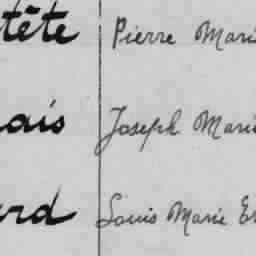 tête Pierre Mari
ais Joseph Marie
rd Louis Marie Er